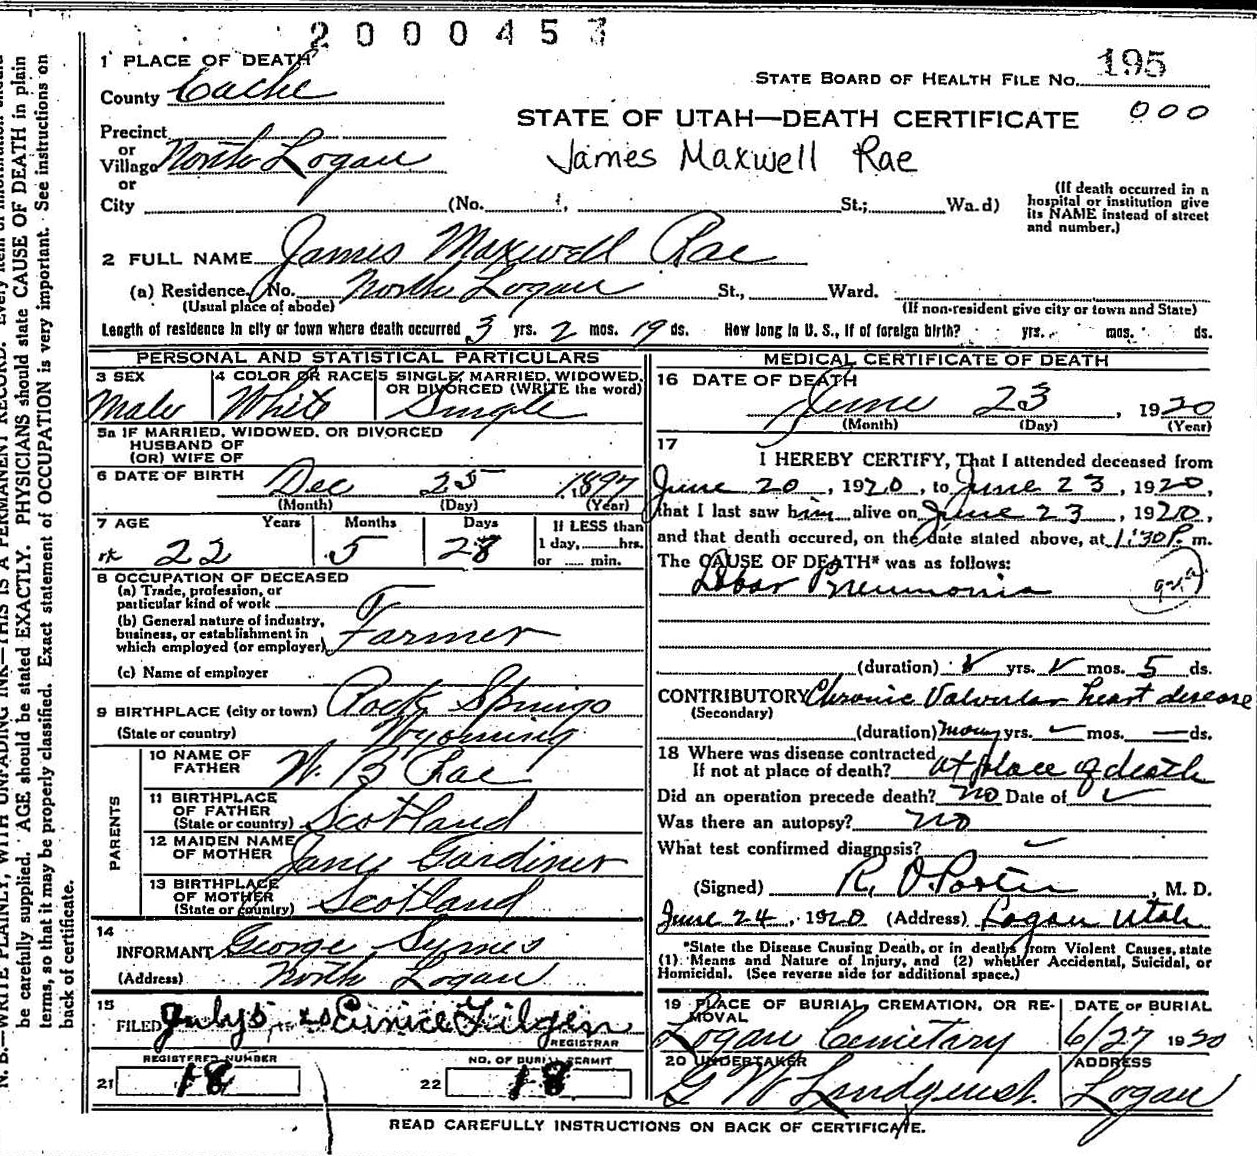 2 0 0 0 4 5 7
1 PLACE OF DEATH
STATE BOARD OF HEALTH FILE No. 195
County Cache
STATE OF UTAH—DEATH CERTIFICATE 000
Precinct
or
Village North Logan
James Maxwell Rae
or
City (No. St.; Wa.d)
(If death occurred in a
hospital or institution give
its NAME instead of street
and number.)
2 FULL NAME James Maxwell Rae
(a) Residence. No. North Logan St., Ward.
(Usual place of abode) (If non-resident give city or town and State)
Length of residence in city or town where death occurred 3 yrs. 2 mos. 19 ds. How long in U. S., if of foreign birth? yrs. mos. ds.
PERSONAL AND STATISTICAL PARTICULARS
3 SEX 4 COLOR OR RACE 5 SINGLE, MARRIED, WIDOWED,
OR DIVORCED (WRITE the word)
Male White Single
5a IF MARRIED, WIDOWED, OR DIVORCED
HUSBAND OF
(OR) WIFE OF
6 DATE OF BIRTH Dec 25 1897
(Month) (Day) (Year)
7 AGE Years Months Days If LESS than
1 day, hrs.
22 5 28 or min.
8 OCCUPATION OF DECEASED
(a) Trade, profession, or
particular kind of work
(b) General nature of industry,
business, or establishment in
which employed (or employer) Farmer
(c) Name of employer
9 BIRTHPLACE (city or town) Rock Springs
(State or country) Wyoming
PARENTS
10 NAME OF
FATHER W. B. Rae
11 BIRTHPLACE
OF FATHER
(State or country) Scotland
12 MAIDEN NAME
OF MOTHER Jane Gardiner
13 BIRTHPLACE
OF MOTHER
(State or country) Scotland
14
INFORMANT George Symes
(Address) North Logan
15
FILED July 5, Eunice
REGISTRAR
REGISTERED NUMBER NO. OF BURIAL PERMIT
21 18 22 18
MEDICAL CERTIFICATE OF DEATH
16 DATE OF DEATH
June 23, 1920
(Month) (Day) (Year)
17
I HEREBY CERTIFY, That I attended deceased from
June 20, 1920, to June 23, 1920,
that I last saw him alive on June 23, 1920,
and that death occured, on the date stated above, at 1:30 P. m.
The CAUSE OF DEATH* was as follows:
Lobar Pneumonia
(duration) yrs. mos. 5 ds.
CONTRIBUTORY Chronic Valvular heart disease
(Secondary)
(duration) many yrs. mos. ds.
18 Where was disease contracted
If not at place of death? at place of death
Did an operation precede death? no Date of
Was there an autopsy? no
What test confirmed diagnosis?
(Signed) R. O. Porter, M. D.
June 24, 1920 (Address) Logan Utah
*State the Disease Causing Death, or in deaths from Violent Causes, state
(1) Means and Nature of Injury, and (2) whether Accidental, Suicidal, or
Homicidal. (See reverse side for additional space.)
19 PLACE OF BURIAL, CREMATION, OR RE-
MOVAL
DATE OF BURIAL
Logan Cemetary 6/27 1920
20 UNDERTAKER ADDRESS
G W Lindquist. Logan
READ CAREFULLY INSTRUCTIONS ON BACK OF CERTIFICATE.
N. B.—WRITE PLAINLY, WITH UNFADING INK—THIS IS A PERMANENT RECORD. Every item of information should
be carefully supplied. AGE should be stated EXACTLY. PHYSICIANS should state CAUSE OF DEATH in plain
terms, so that it may be properly classified. Exact statement of OCCUPATION is very important. See instructions on
back of certificate.